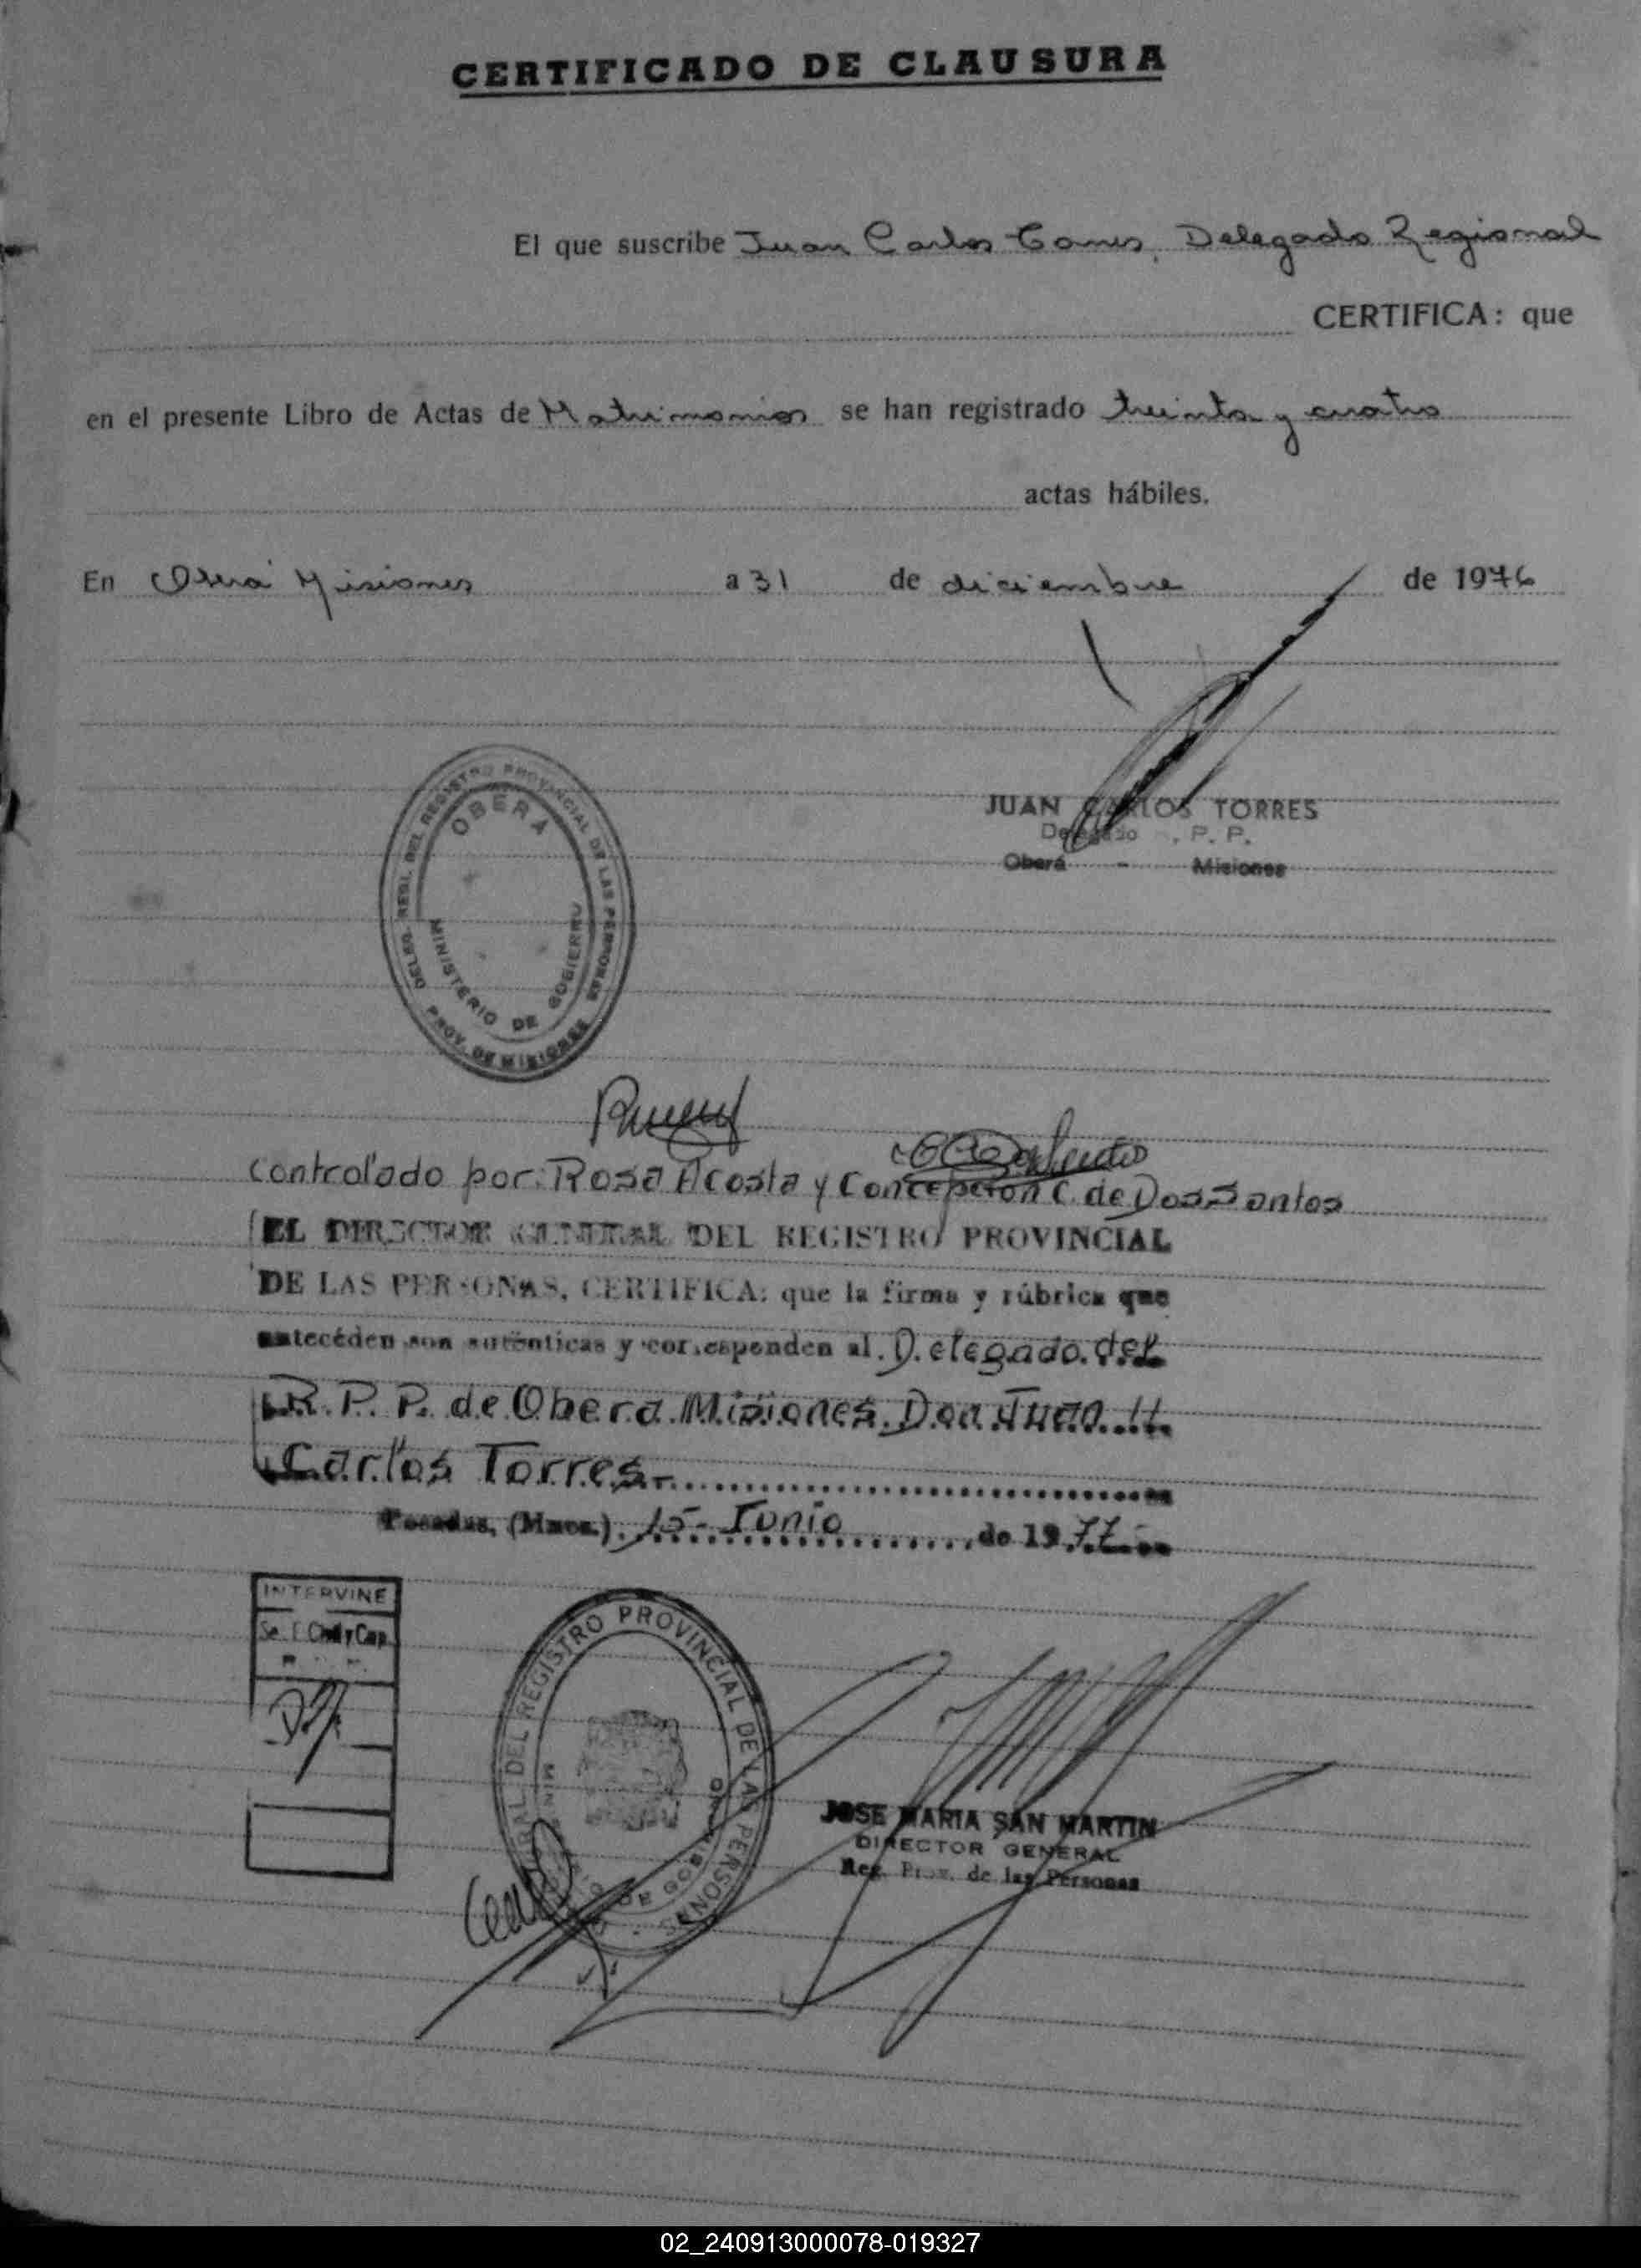 CERTIFICADO DE CLAUSURA
El que suscribe Juan Carlos Torres, Delegado Regional
CERTIFICA: que
en el presente Libro de Actas de Matrimonios se han registrado treinta y cuatro
actas hábiles.
En Oberá Misiones a 31 de diciembre de 1976
JUAN CARLOS TORRES
Delegado . P. P.
Oberá - Misiones
DELEG. REGL. DEL REGISTRO PROVINCIAL DE LAS PERSONAS
OBERA
MINISTERIO DE GOBIERNO
PROV. DE MISIONES
Controlado por: Rosa Acosta y Concepcion C. de Dos Santos
EL DIRECTOR GENERAL DEL REGISTRO PROVINCIAL
DE LAS PERSONAS, CERTIFICA: que la firma y rúbrica que
antecéden son auténticas y corresponden al. Delegado del
R. P. P. de Obera Misiones. Don Juan
Carlos Torres.-
Posadas, (Mnes.) 15- Junio de 1977.-
INTERVINE
Civil y Cap.
DEL REGISTRO PROVINCIAL DE LAS PERSONAS
DE GOBIERNO
JOSE MARIA SAN MARTIN
DIRECTOR GENERAL
Reg. Prov. de las Personas
02_240913000078-019327